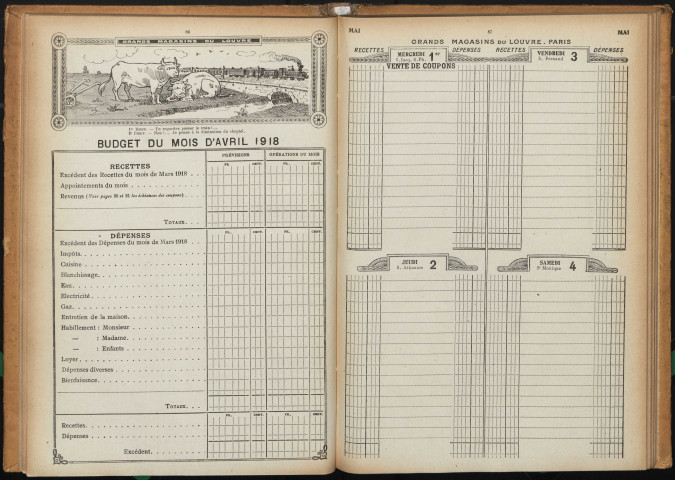 86
GRANDS MAGASINS DU LOUVRE
1er BŒUF. — Tu regardes passer le train?...
2e BŒUF. — Non!... Je pense à la diminution du cheptel.
BUDGET DU MOIS D'AVRIL 1918
PRÉVISIONS OPÉRATIONS DU MOIS
RECETTES FR. CENT. FR. CENT.
Excédent des Recettes du mois de Mars 1918 . .
Appointements du mois . . . . . . . . . . . .
TOTAUX. . .
DÉPENSES FR. CENT. FR. CENT.
Excédent des Dépenses du mois de Mars 1918 . .
Impôts. . . . . . . . . . . . . . . . . . . .
Cuisine . . . . . . . . . . . . . . . . . . .
Blanchissage. . . . . . . . . . . . . . . . .
Eau. . . . . . . . . . . . . . . . . . . . .
Electricité. . . . . . . . . . . . . . . . . .
Gaz. . . . . . . . . . . . . . . . . . . . .
Entretien de la maison. . . . . . . . . . . .
Habillement : Monsieur . . . . . . . . . . . .
— : Madame. . . . . . . . . . . . .
— : Enfants . . . . . . . . . . . .
Loyer. . . . . . . . . . . . . . . . . . . .
Dépenses diverses . . . . . . . . . . . . . .
Bienfaisance. . . . . . . . . . . . . . . . .
TOTAUX. . .
FR. CENT. FR. CENT.
Recettes. . . . . . . . . . . . . . . . . . .
Dépenses . . . . . . . . . . . . . . . . . .
Excédent. . . .
MAI 87 MAI
GRANDS MAGASINS DU LOUVRE, PARIS
RECETTES MERCREDI 1er DÉPENSES RECETTES VENDREDI 3 DÉPENSES
S. Jacq. S. Ph.
VENTE DE COUPONS
JEUDI 2 SAMEDI 4
S. Athanase Ste Monique